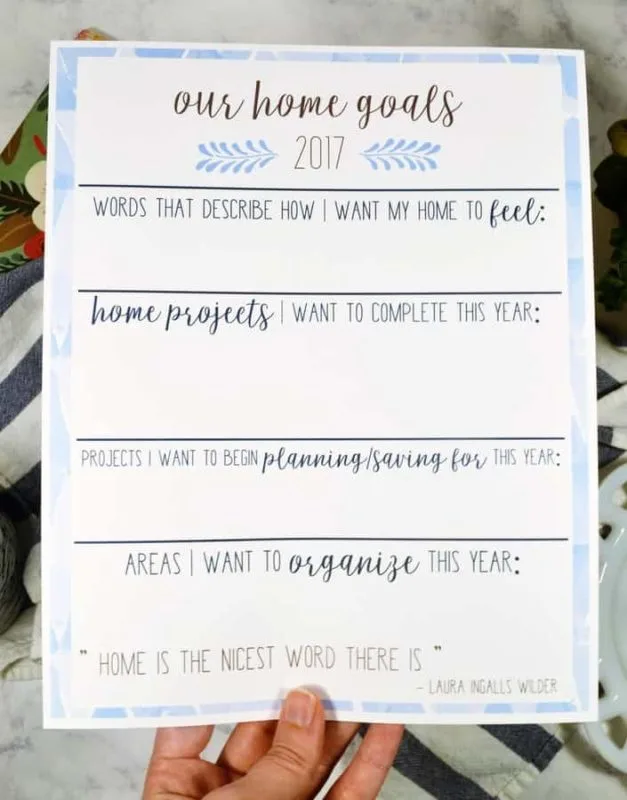 our home goals
2017
WORDS THAT DESCRIBE HOW I WANT MY HOME TO feel:
home projects I WANT TO COMPLETE THIS YEAR:
PROJECTS I WANT TO BEGIN planning/saving for THIS YEAR:
AREAS I WANT TO organize THIS YEAR:
" HOME IS THE NICEST WORD THERE IS "
- LAURA INGALLS WILDER